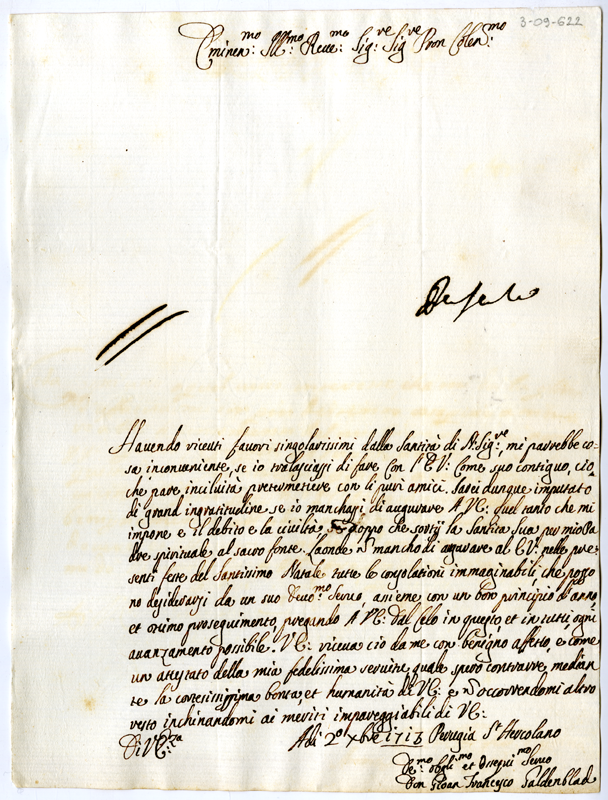 3-09-622
Eminen:mo Ill:mo Reue:mo Sig:re Sig:re Pron Colen:mo
Hauendo riceuti fauori singolarissimi dalla Santità di N. Sig:re, mi parrebbe co-
sa inconueniente, se io tralasciassi di fare con l'E.V: come suo contiguo, ciò
che pare inciuiltà pretermetere con li puri amici. Sarei dunque imputato
di grand ingratitudine se io manchassi di augurare A VE: quel tanto che mi
impone e il debito e la ciuiltà doppo che sortij la Santità Sua per mio Pa-
dre spirituale al sacro fonte. Laonde nō mancho di agurare al EV: nelle pre-
senti feste del Santissimo Natale tutte le consolationi immaginabili, che posso-
no desiderarsi da un suo Deuo:mo Seruo, asieme con un bon principio d'anno,
et otimo proseguimento, pregando A VE: Dal Celo in questo et in tutti ogni
auanzamento possibile. VE: riceua ciò da me con benigno affetto, e come
un attestato della mia fedelissima seruitù, quale spero contrarre, median-
te la cortesissima bontà, et humanità di VE: e nō occorrendomi altro
resto inchinandomi ai meriti impareggiabili di VE:
Di VE:za
Adi 2º Xbre 1713 Perugia S. Hercolano
De:mo Obli:mo et Ossequi:mo Seruo
Don Gioan Francesco Galdenblad